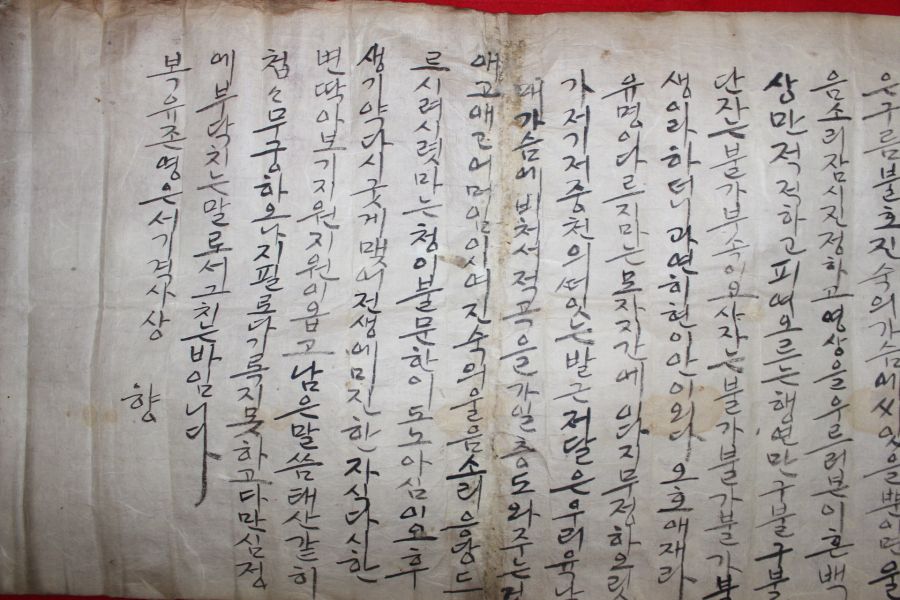 은구름불호진숙의가슴에싸잇을뿐이면울
음소리잠시진정하고영상을우르러본이혼백
상만적적하고피여오르는행연만구불구불
단잔는불가부속이요사자는불가불가불가부
생이라하더니과연허헌이안이외다오호애재라
유명이다르지마는모자간에이다지무정하오릿
가저기저중천의떠잇는발근저달은우리유난
가슴에비처서적곡을가일층도와주는
애고애고어머임이시여진숙의울음소래응당드
르시려시렷마는청이불문한이도노아심이오후
생기약다시굿게맺어전생에미진한자식다시한
번딱아보기지원지원이옵고남은말씀태산갇히
첩々무궁하온나지필로다기록지못하고다만심정
에부닥치는말로서그치는바입니다
복유존영은서기격사상
향